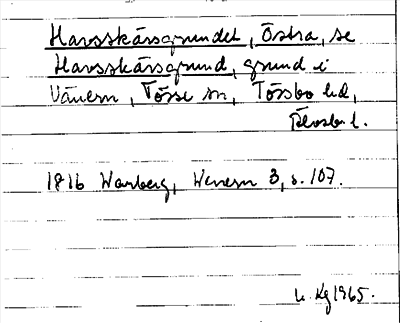 Harsskärsgrundet, Östra, se
Harsskärsgrund, grund i
Vänern, Tösse sn, Tössbo hd,
Älvsb. l.
1816 Warberg, Wenern 3, s. 107.
1965.